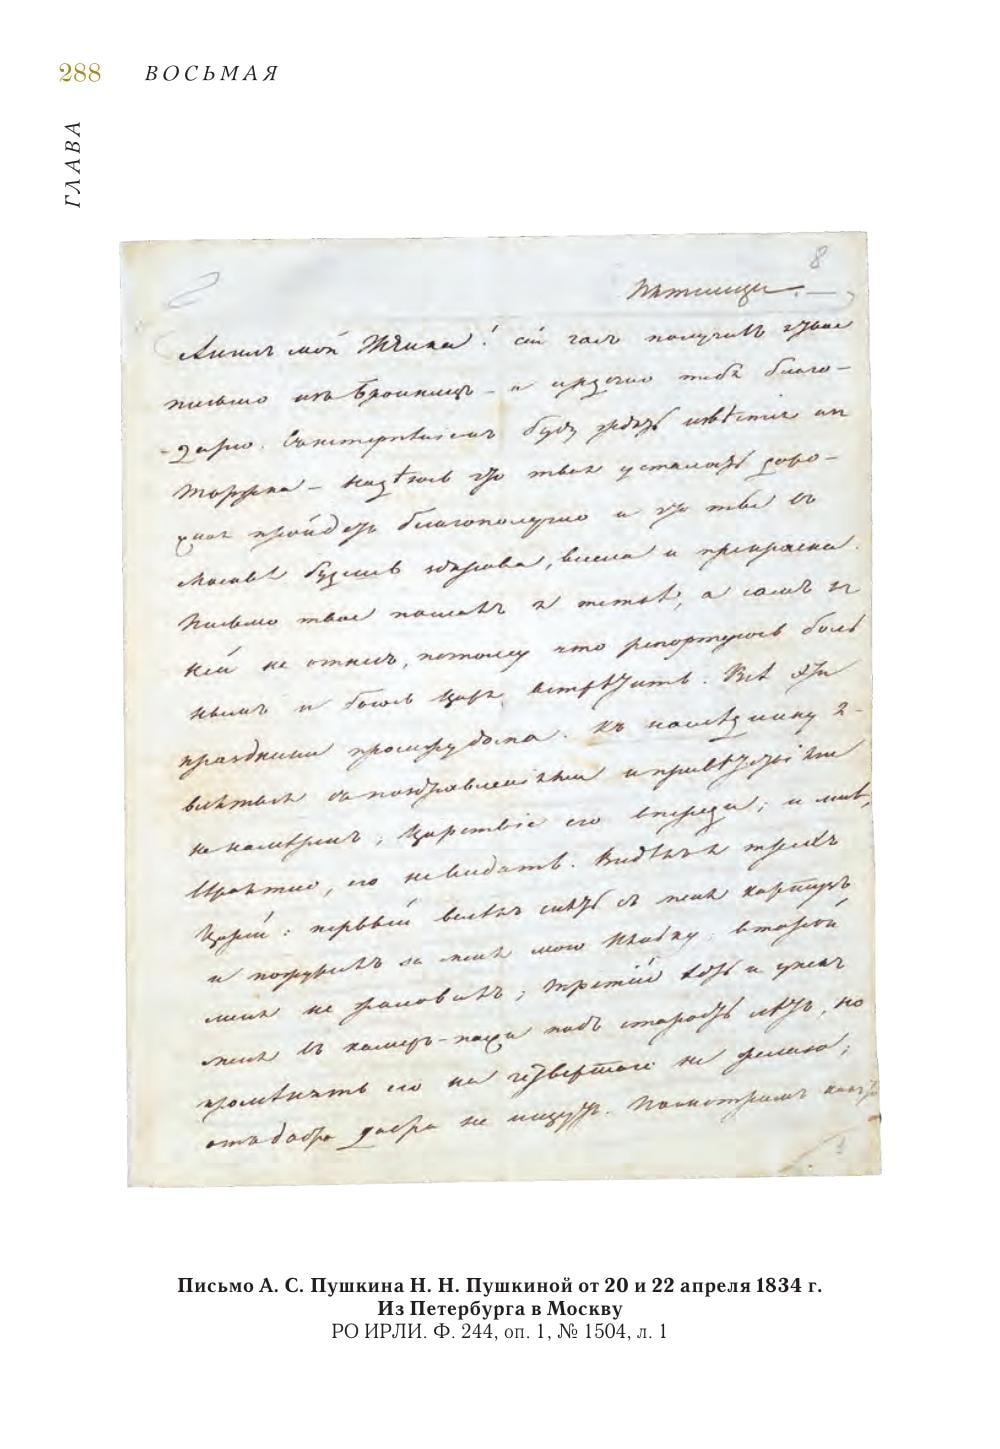 288 ВОСЬМАЯ
ГЛАВА
8
Пятница.
Ангелъ мой Жёнка! сей часъ получилъ я твое
письмо изъ Бронницъ – и сердечно тебя благо–
–дарю. Съ нетерпѣніемъ буду ждать извѣстія изъ
Торжка – Надѣюсь что твоя усталость доро–
жная пройдетъ благополучно и что ты въ
Москвѣ будешь здорова, весела и прекрасна.
Письмо твое послалъ я теткѣ, а самъ къ
ней не отнесъ, потому что репортуюсь боль
нымъ и боюсь Царя встрѣтить. Всѣ эти
праздники просижу дома. Къ наслѣднику я–
вляться съ поздравленіями и привѣтствіями
не намѣренъ; Царствіе его впереди; и мнѣ,
вѣроятно, его не видать. Видѣлъ я трехъ
Царей: первый велѣлъ снять съ меня картузъ
и пожурилъ за меня мою няньку; второй
меня не жаловалъ; третій хоть и упекъ
меня въ камеръ-пажи подъ старость лѣтъ, но
промѣнять его на четвертаго не желаю;
отъ добра добра не ищутъ. Посмотримъ какъ то
Письмо А. С. Пушкина Н. Н. Пушкиной от 20 и 22 апреля 1834 г.
Из Петербурга в Москву
РО ИРЛИ. Ф. 244, оп. 1, № 1504, л. 1